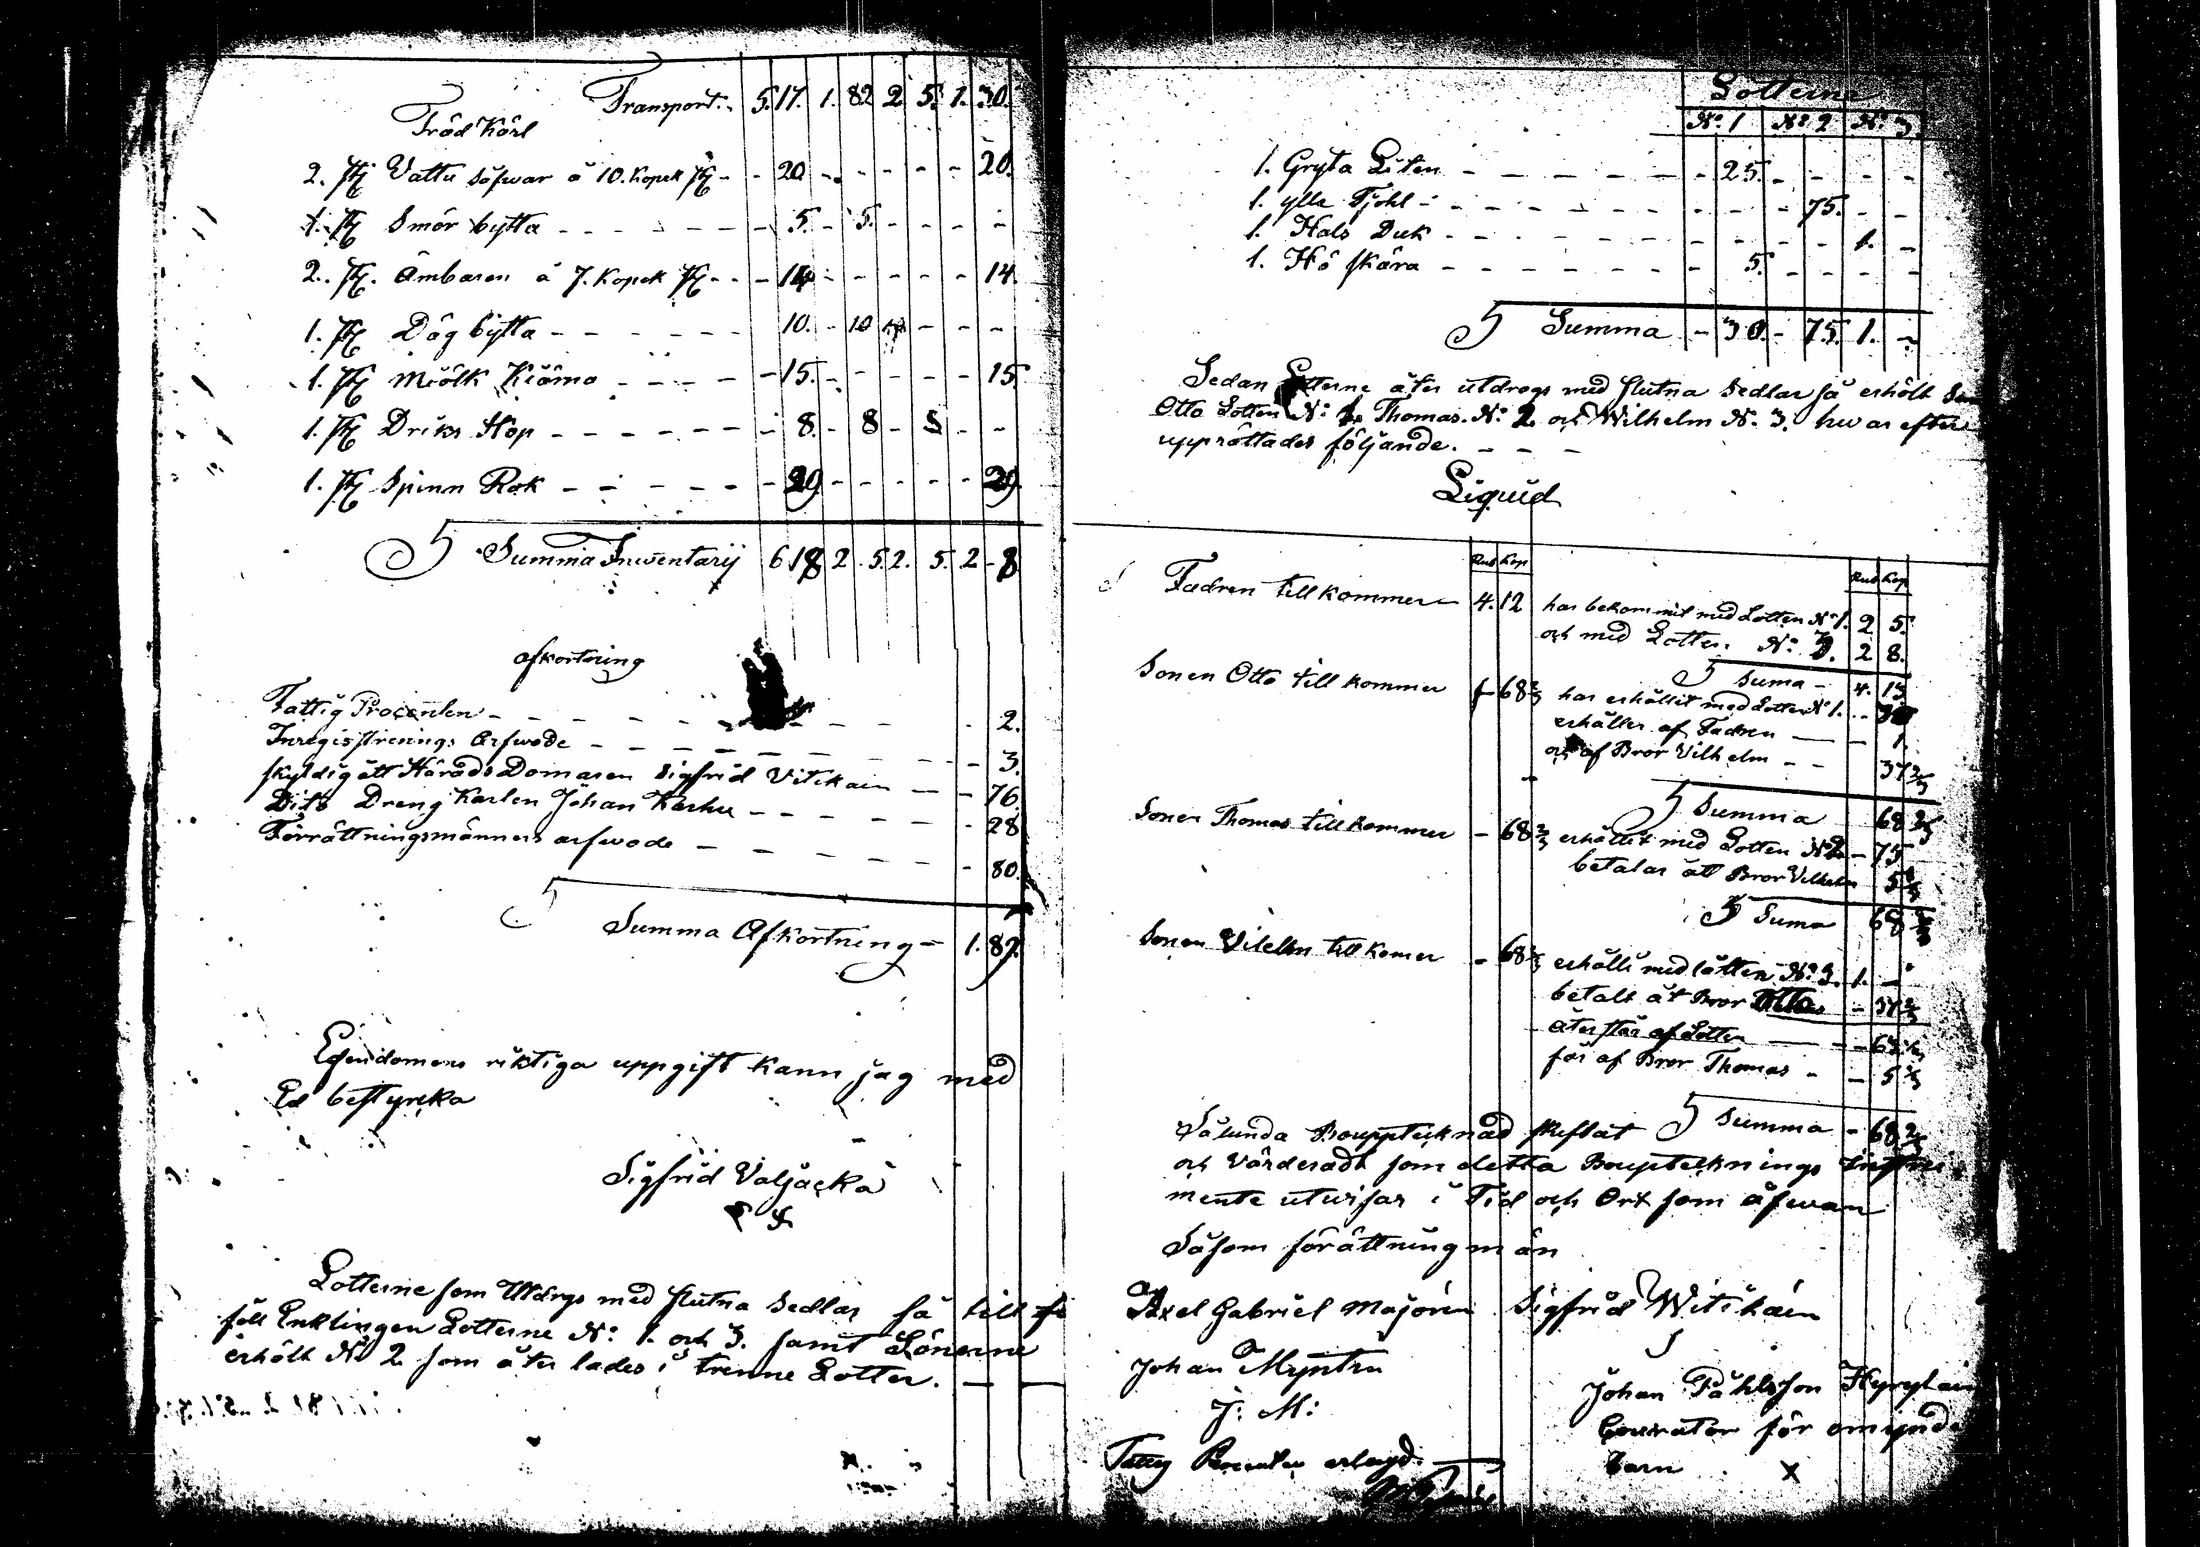 Transport:. 5. 17. 1. 82 2. 5. 1. 30.
Träd Kärl
2. st Vattu såfwar á 10. Kopek st - - 20 - - - - - - 20.
1. st Smör bytta - - - - - - - 5. - 5. - - - -
2. st. Ämbaren á 7. Kopek st - - - 14 - - - - - 14.
1. st Dög bytta - - - - - - 10. - 10 - - -
1. st Miölk Kiärno - - - - - 15. - - - - - - 15
1. st Driks Hop - - - - - - - - 8. - 8 - - -
1. st Spinn Rok - - - - - - - 29 - - - - - 29.
Summa Inventarij 6 18 2 5. 2. 5. 2 - 8
afkortning
Fattig Procenten - - - - - - - - 2.
Inregistrerings Arfwode - - - - - - - - 3.
skyldig ått Härads Domaren Sigfrid Vitikain - - 76.
Dito Dreng Karlen Johan Karhu - - - - - - 28
Förrättningsmänners arfwode - - - - - - 80.
Summa Afkortning - 1. 89.
Egendomens riktiga uppgift kann jag med
Ed bestyrcka
Sigfrid Valjacka
Lotterne som Utdrgs med slutna Sedlar så till
föll Enklingen Lotterne No: 1. och 3. samt Sönerne
erhölt No 2 som åter lades i trenne Lotter. -
Lotterne
No. 1 No. 2 No. 3
1. Gryta Liten - - - - - - - 25. - - - - -
1. ylle Tjohl - - - - - - - - - - 75. - -
1. Hals Duk - - - - - - - - - - - 1. -
1. Hö skära - - - - - - - 5. - - - - -
Summa - 30. - 75. 1. -
Sedan Lotterne åter utdrogs med slutna Sedlar så erhölt
Otto Lotten No: 1. Thomas. No: 2 och Wilhelm No. 3. hwar efter
upprättades följande. - - -
Liquid
Rub Kop Rub Kop
Fadren tillkommer - 4. 12 har bekommit med Lotten No 1. 2 5.
och med Lotten. No: 3. 2 8.
Suma - 4. 13
Sonen Otto till kommer - 68 2/3 har erhållit med Lotten No 1. - 30
erhåller af Fadren - - 1.
och af Bror Vilhelm - - 37 2/3
Summa 68 2/3
Sonen Thomas till kommer - 68 2/3 erhållit med Lotten No 2 - 75
betalar åt Bror Vilhelm
Suma 68
Sonen Vilelm till komer - 68 2/3 erhålli med lotten No: 3. 1. -
betalt åt Bror Otto - 37 2/3
återstår af Lotten - -
får af Bror Thomas - - 5
Summa - 68 2/3
Sålunda Bouppteknad skiftat
och Värderadt som detta Bouptecknings
mente utwisar i Tid och Ort som åfwan
Såsom förättningmän
Axel Gabriel Majorin Sigfrid Witikain
Johan Myntru
J: M:
Johan Påhlsson Hyrylain
Couvator för omynd
barn X
Fattig Procenten erlagd.